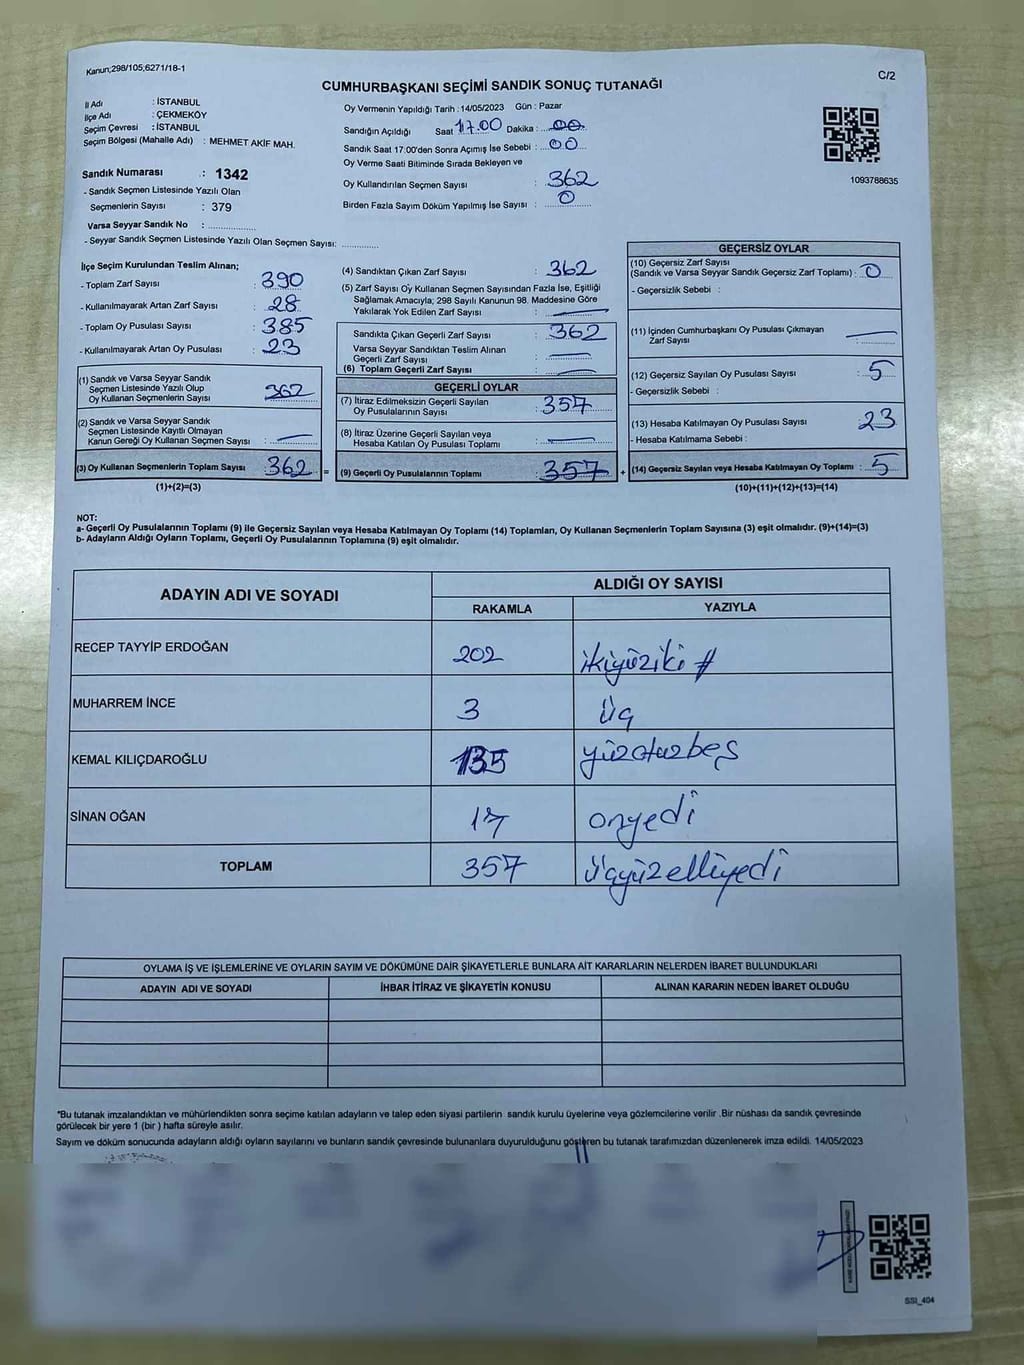 Kanun;298/105;6271/18-1
C/2
CUMHURBAŞKANI SEÇİMİ SANDIK SONUÇ TUTANAĞI
İl Adı : İSTANBUL
İlçe Adı : ÇEKMEKÖY
Seçim Çevresi : İSTANBUL
Seçim Bölgesi (Mahalle Adı) : MEHMET AKİF MAH.
Sandık Numarası : 1342
- Sandık Seçmen Listesinde Yazılı Olan
Seçmenlerin Sayısı : 379
Varsa Seyyar Sandık No :
- Seyyar Sandık Seçmen Listesinde Yazılı Olan Seçmen Sayısı:
Oy Vermenin Yapıldığı Tarih : 14/05/2023 Gün : Pazar
Sandığın Açıldığı Saat 17.00 Dakika : 00
Sandık Saat 17:00'den Sonra Açımış İse Sebebi : 00
Oy Verme Saati Bitiminde Sırada Bekleyen ve
Oy Kullandırılan Seçmen Sayısı : 362
Birden Fazla Sayım Döküm Yapılmış İse Sayısı : 0
1093788635
İlçe Seçim Kurulundan Teslim Alınan;
- Toplam Zarf Sayısı : 390
- Kullanılmayarak Artan Zarf Sayısı : 28
- Toplam Oy Pusulası Sayısı : 385
- Kullanılmayarak Artan Oy Pusulası : 23
(1) Sandık ve Varsa Seyyar Sandık
Seçmen Listesinde Yazılı Olup
Oy Kullanan Seçmenlerin Sayısı : 362
(2) Sandık ve Varsa Seyyar Sandık
Seçmen Listesinde Kayıtlı Olmayan
Kanun Gereği Oy Kullanan Seçmen Sayısı : —
(3) Oy Kullanan Seçmenlerin Toplam Sayısı : 362 =
(1)+(2)=(3)
(4) Sandıktan Çıkan Zarf Sayısı : 362
(5) Zarf Sayısı Oy Kullanan Seçmen Sayısından Fazla İse, Eşitliği
Sağlamak Amacıyla; 298 Sayılı Kanunun 98. Maddesine Göre
Yakılarak Yok Edilen Zarf Sayısı : —
Sandıkta Çıkan Geçerli Zarf Sayısı : 362
Varsa Seyyar Sandıktan Teslim Alınan
Geçerli Zarf Sayısı : —
(6) Toplam Geçerli Zarf Sayısı : —
GEÇERLİ OYLAR
(7) İtiraz Edilmeksizin Geçerli Sayılan
Oy Pusulalarının Sayısı : 357
(8) İtiraz Üzerine Geçerli Sayılan veya
Hesaba Katılan Oy Pusulası Toplamı : —
(9) Geçerli Oy Pusulalarının Toplamı : 357 +
GEÇERSİZ OYLAR
(10) Geçersiz Zarf Sayısı
(Sandık ve Varsa Seyyar Sandık Geçersiz Zarf Toplamı) : 0
- Geçersizlik Sebebi :
(11) İçinden Cumhurbaşkanı Oy Pusulası Çıkmayan
Zarf Sayısı : —
(12) Geçersiz Sayılan Oy Pusulası Sayısı : 5
- Geçersizlik Sebebi :
(13) Hesaba Katılmayan Oy Pusulası Sayısı : 23
- Hesaba Katılmama Sebebi :
(14) Geçersiz Sayılan veya Hesaba Katılmayan Oy Toplamı : 5
(10)+(11)+(12)+(13)=(14)
NOT:
a- Geçerli Oy Pusulalarının Toplamı (9) ile Geçersiz Sayılan veya Hesaba Katılmayan Oy Toplamı (14) Toplamları, Oy Kullanan Seçmenlerin Toplam Sayısına (3) eşit olmalıdır. (9)+(14)=(3)
b- Adayların Aldığı Oyların Toplamı, Geçerli Oy Pusulalarının Toplamına (9) eşit olmalıdır.
ADAYIN ADI VE SOYADI ALDIĞI OY SAYISI
RAKAMLA YAZIYLA
RECEP TAYYİP ERDOĞAN 202 ikiyüziki #
MUHARREM İNCE 3 üç
KEMAL KILIÇDAROĞLU 135 yüzotuzbeş
SİNAN OĞAN 17 onyedi
TOPLAM 357 üçyüzelliyedi
OYLAMA İŞ VE İŞLEMLERİNE VE OYLARIN SAYIM VE DÖKÜMÜNE DAİR ŞİKAYETLERLE BUNLARA AİT KARARLARIN NELERDEN İBARET BULUNDUKLARI
ADAYIN ADI VE SOYADI İHBAR İTİRAZ VE ŞİKAYETİN KONUSU ALINAN KARARIN NEDEN İBARET OLDUĞU
*Bu tutanak imzalandıktan ve mühürlendikten sonra seçime katılan adayların ve talep eden siyasi partilerin sandık kurulu üyelerine veya gözlemcilerine verilir .Bir nüshası da sandık çevresinde
görülecek bir yere 1 (bir ) hafta süreyle asılır.
Sayım ve döküm sonucunda adayların aldığı oyların sayılarını ve bunların sandık çevresinde bulunanlara duyurulduğunu gösteren bu tutanak tarafımızdan düzenlenerek imza edildi. 14/05/2023
SSI_404